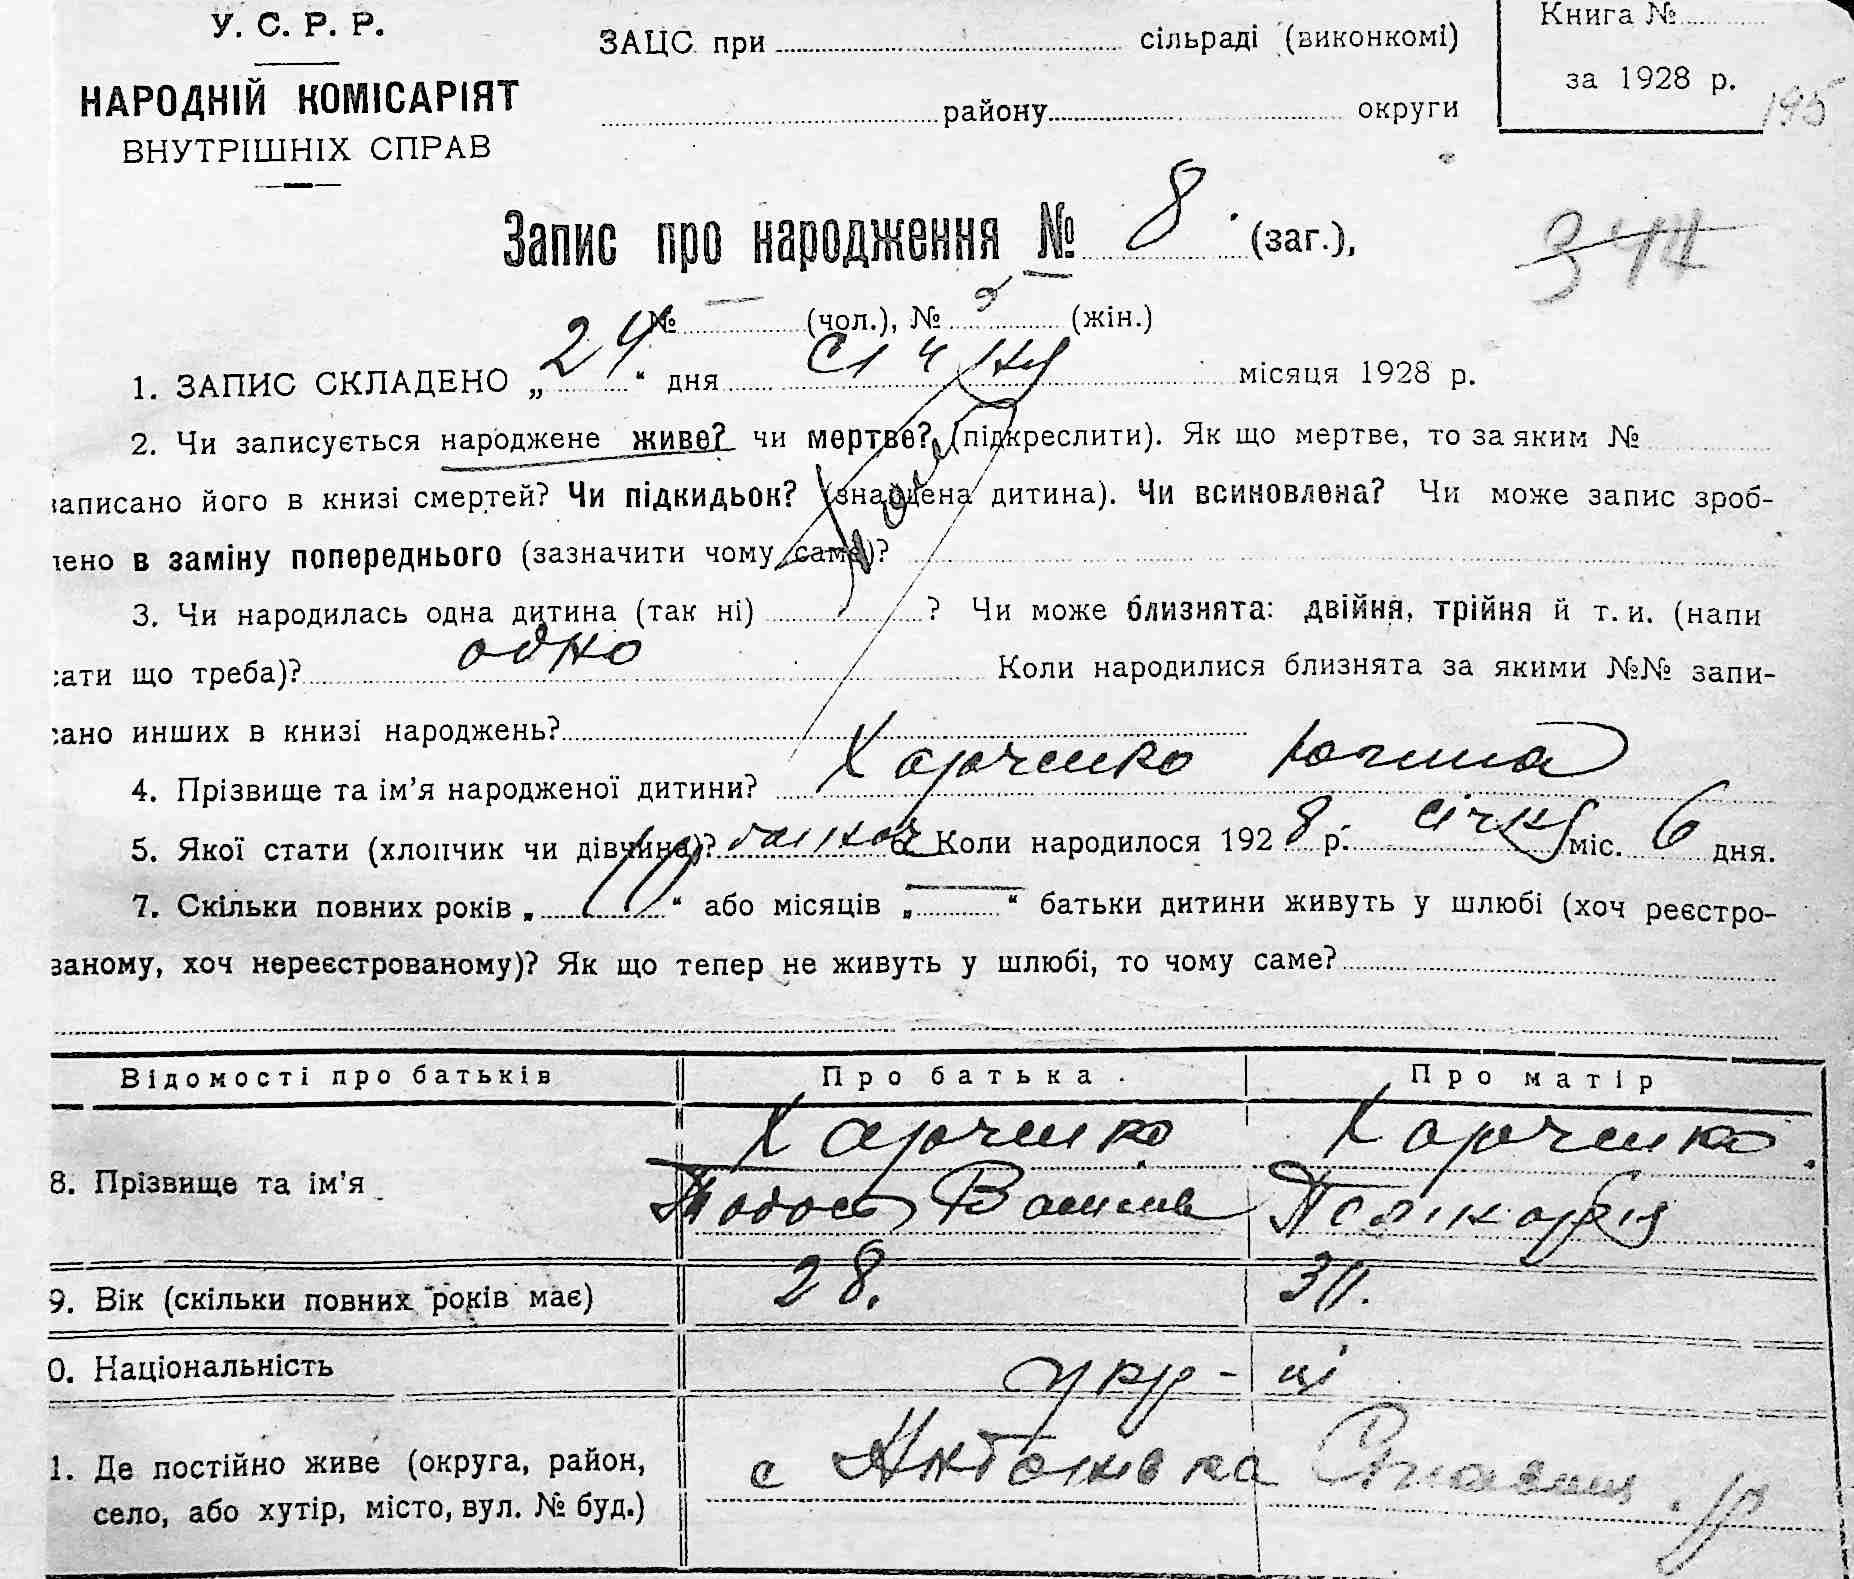 У. С. Р. Р.
НАРОДНІЙ КОМІСАРІЯТ
ВНУТРІШНІХ СПРАВ
ЗАЦС при сільраді (виконкомі)
району округи
Книга №
за 1928 р.
195
Запис про народження № 8 (заг.),
344
№ — (чол.), № (жін.)
1. ЗАПИС СКЛАДЕНО „24“ дня січня місяця 1928 р.
2. Чи записується народжене живе? чи мертве? (підкреслити). Як що мертве, то за яким №
записано його в книзі смертей? Чи підкидьок? (знайдена дитина). Чи всиновлена? Чи може запис зроб-
лено в заміну попереднього (зазначити чому саме)?
3. Чи народилась одна дитина (так ні) ? Чи може близнята: двійня, трійня й т. и. (напи
сати що треба)? одно Коли народилися близнята за якими №№ запи-
сано инших в книзі народжень?
4. Прізвище та ім’я народженої дитини? Харченко
5. Якої стати (хлопчик чи дівчина)? Коли народилося 1928 р. січня міс. 6 дня.
7. Скільки повних років „ “ або місяців „—“ батьки дитини живуть у шлюбі (хоч реєстро-
ваному, хоч нереєстрованому)? Як що тепер не живуть у шлюбі, то чому саме?
Відомості про батьків Про батька. Про матір
8. Прізвище та ім’я Харченко Харченко
Тодось Полікарія
9. Вік (скільки повних років має) 28.
0. Національність укр-ці
1. Де постійно живе (округа, район,
село, або хутір, місто, вул. № буд.) с Антонівка Ставищ. р